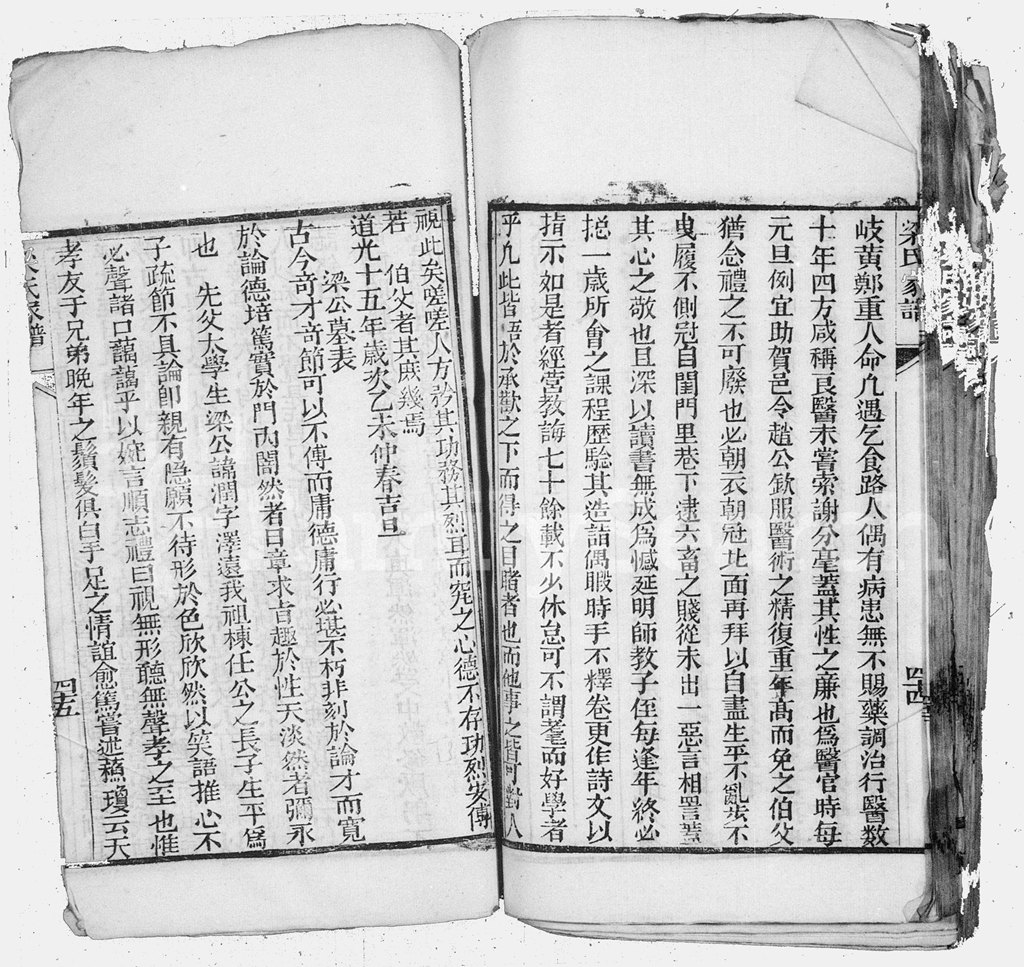 梁氏家譜
岐黃鄭重人命凡遇乞食路人偶有病患無不賜藥調治行醫數
十年四方咸稱良醫未嘗索謝分毫蓋其性之廉也爲醫官時每
元旦例宜助賀邑令趙公欽服醫術之精復重年高而免之伯父
猶念禮之不可廢也必朝衣朝冠北面再拜以自盡生平不亂步不
曳履不側冠自閨門里巷下逮六畜之賤從未出一惡言相詈蓋
其心之敬也且深以讀書無成爲憾延明師教子侄每逢年終必
挹一歲所會之課程歷驗其造詣偶暇時手不釋卷更作詩文以
指示如是者經營教誨七十餘載不少休怠可不謂耄而好學者
乎凡此皆語於承歡之下而得之目睹者也而他事之皆可對人
四十四
視此矣嗟嗟人方矜其功務其烈耳而究之心德不存功烈安傳
若 伯父者其庶幾焉
道光十五年歲次乙未仲春吉旦
梁公墓表
古今奇才奇節可以不傳而庸德庸行必堪不朽非刻於論才而寬
於論德培篤實於門內闇然者日章求言趣於性天淡然者彌永
也 先父太學生梁公諱潤字澤遠我祖棟仕公之長子生平爲
子疏節不具論卽親有隱願不待形於色欣欣然以笑語推心不
必聲諸口藹藹乎以婉言順志禮曰視無形聽無聲孝之至也惟
孝友于兄弟晚年之鬚髮俱白手足之情誼愈篤嘗述蘇瓊云天
氏家譜
四十五